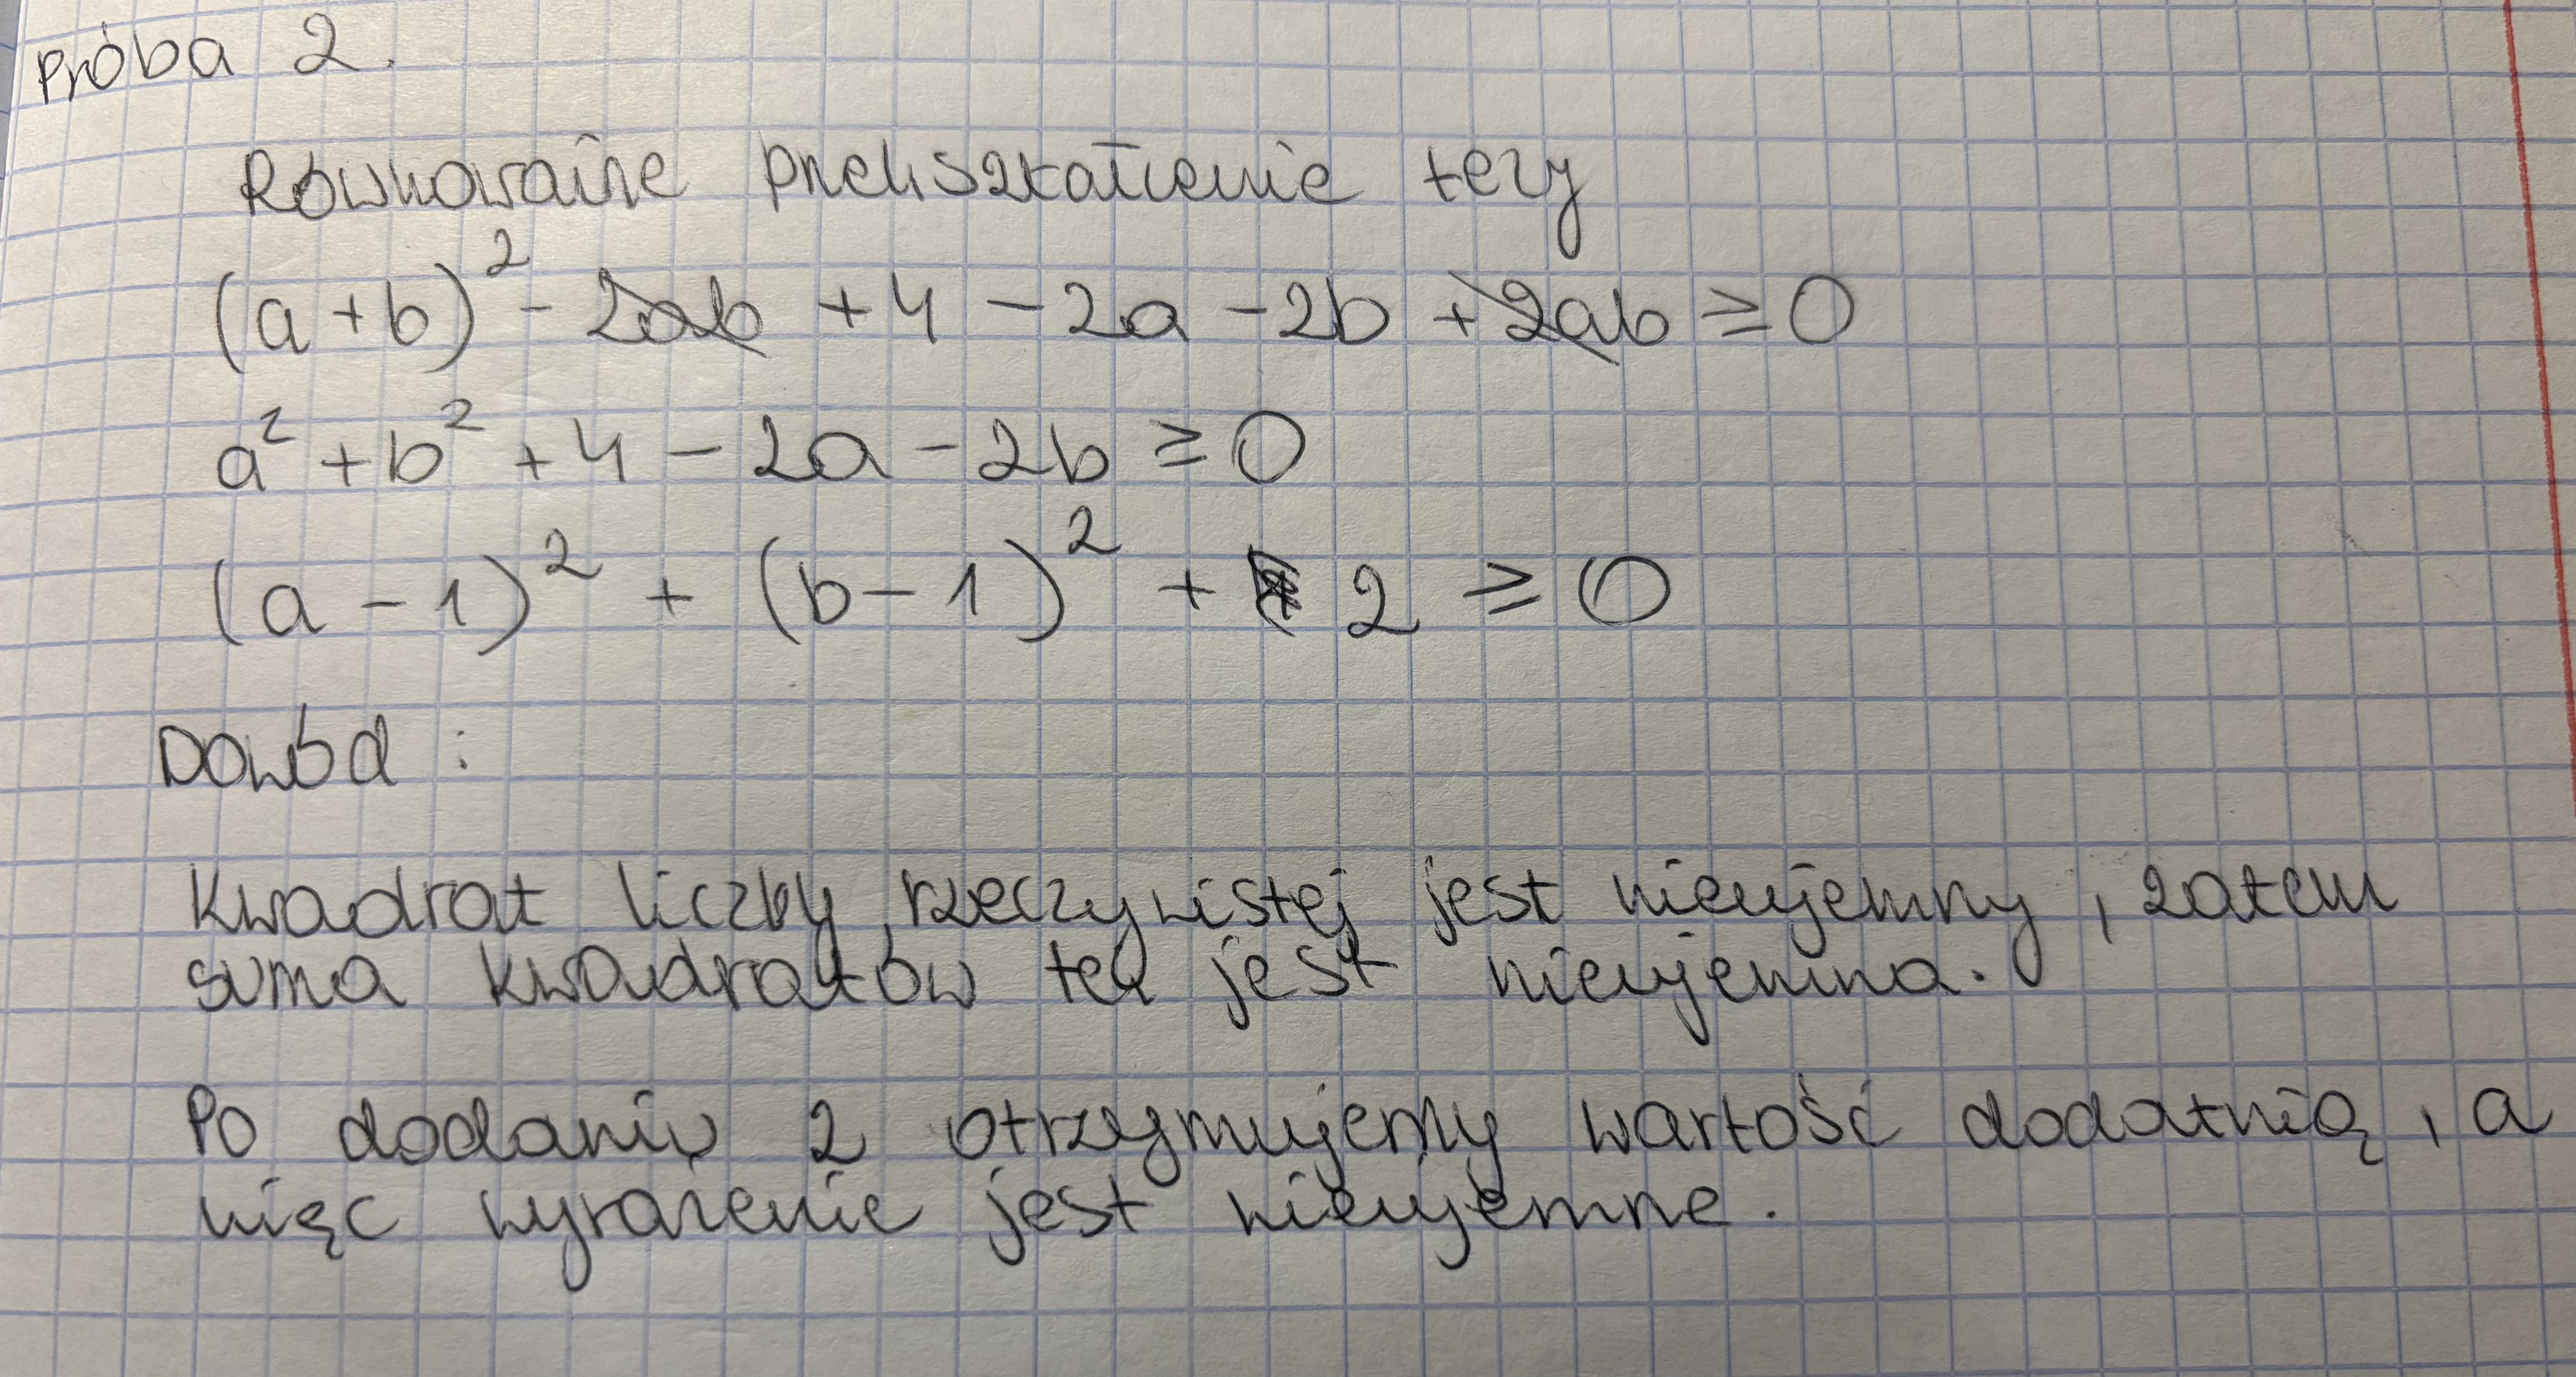 Próba 2.
Równoważne przekształcenie tezy
(a+b)² - 2ab + 4 - 2a - 2b + 2ab ≥ 0
a² + b² + 4 - 2a - 2b ≥ 0
(a - 1)² + (b - 1)² + 2 ≥ 0
Dowód :
Kwadrat liczby rzeczywistej jest nieujemny, zatem
suma kwadratów też jest nieujemna.
Po dodaniu 2 otrzymujemy wartość dodatnią, a
więc wyrażenie jest nieujemne.